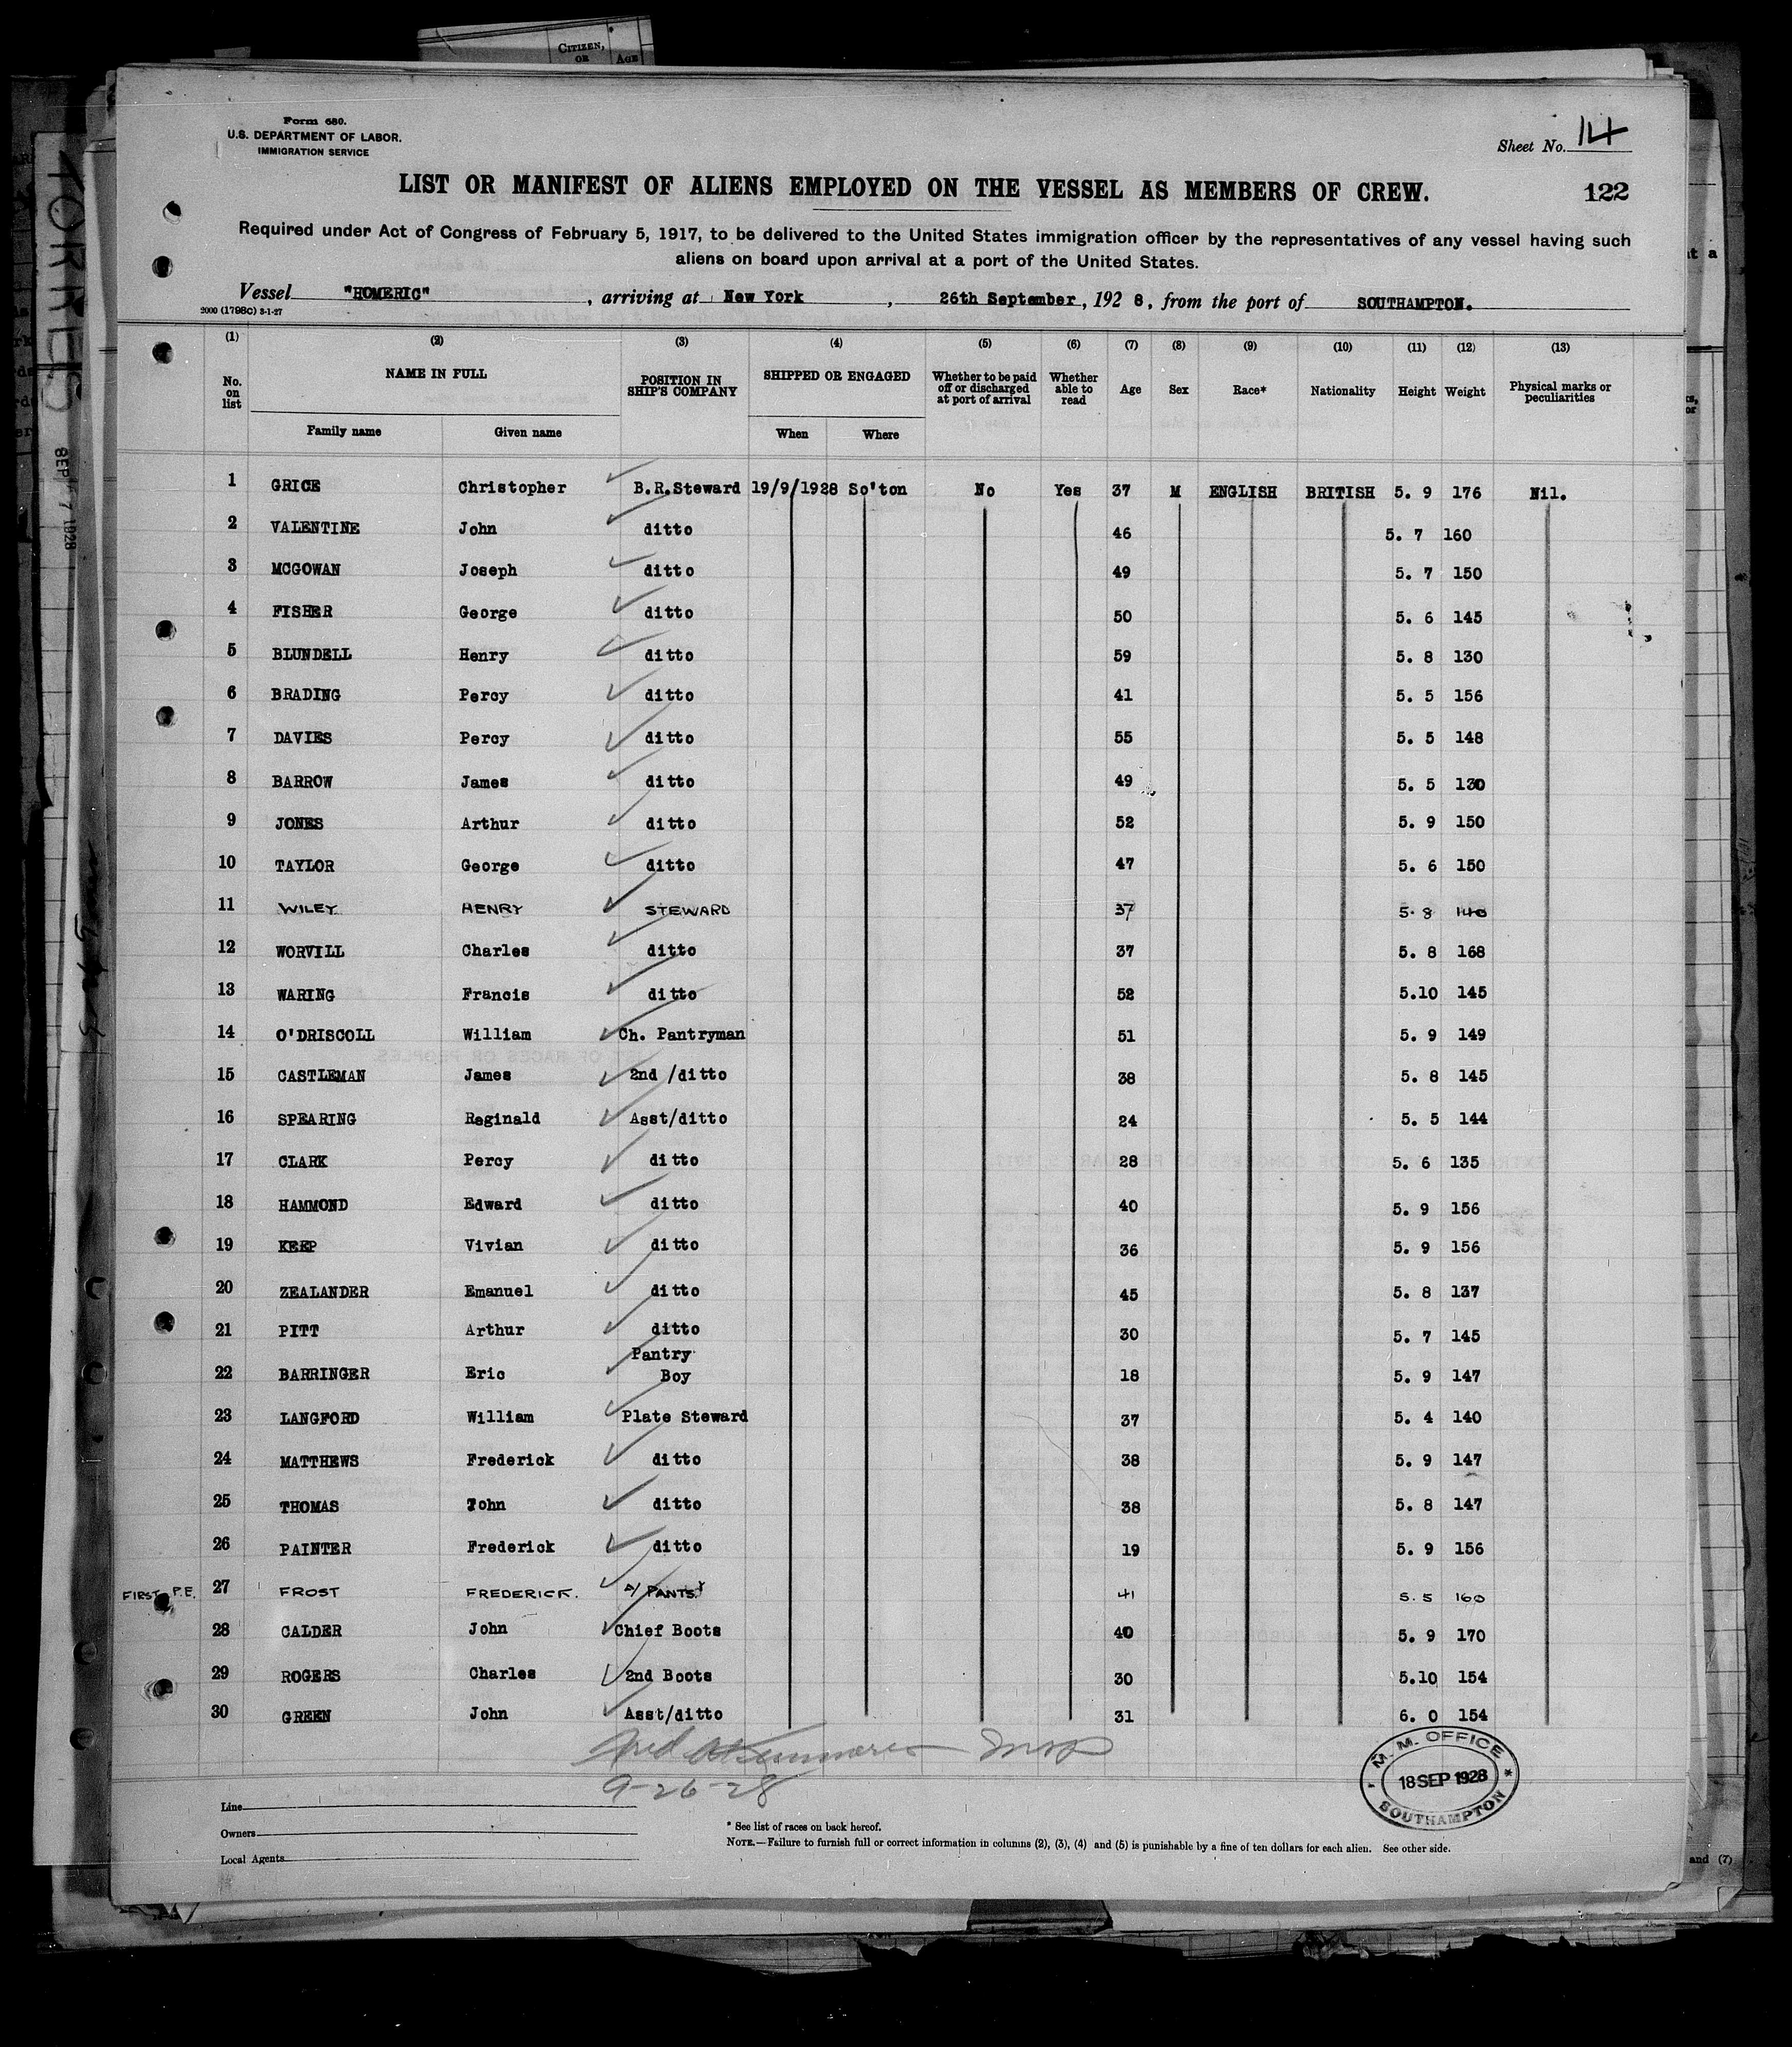 CITIZEN,
OR
AGE
Form 680.
U.S. DEPARTMENT OF LABOR.
IMMIGRATION SERVICE
Sheet No. 14
LIST OR MANIFEST OF ALIENS EMPLOYED ON THE VESSEL AS MEMBERS OF CREW.
122
Required under Act of Congress of February 5, 1917, to be delivered to the United States immigration officer by the representatives of any vessel having such
aliens on board upon arrival at a port of the United States.
Vessel "HOMERIC", arriving at New York, 26th September, 1928, from the port of SOUTHAMPTON.
2000 (1798C) 3-1-27
(1) (2) (3) (4) (5) (6) (7) (8) (9) (10) (11) (12) (13)
No. on list NAME IN FULL POSITION IN SHIP'S COMPANY SHIPPED OR ENGAGED Whether to be paid off or discharged at port of arrival Whether able to read Age Sex Race* Nationality Height Weight Physical marks or peculiarities
Family name Given name When Where
1 GRICE Christopher B.R.Steward 19/9/1928 So'ton No Yes 37 M ENGLISH BRITISH 5. 9 176 Nil.
2 VALENTINE John ditto 46 5. 7 160
3 MCGOWAN Joseph ditto 49 5. 7 150
4 FISHER George ditto 50 5. 6 145
5 BLUNDELL Henry ditto 59 5. 8 130
6 BRADING Percy ditto 41 5. 5 156
7 DAVIES Percy ditto 55 5. 5 148
8 BARROW James ditto 49 5. 5 130
9 JONES Arthur ditto 52 5. 9 150
10 TAYLOR George ditto 47 5. 6 150
11 WILEY HENRY STEWARD 37 5. 8 140
12 WORVILL Charles ditto 37 5. 8 168
13 WARING Francis ditto 52 5.10 145
14 O'DRISCOLL William Ch. Pantryman 51 5. 9 149
15 CASTLEMAN James 2nd /ditto 38 5. 8 145
16 SPEARING Reginald Asst/ditto 24 5. 5 144
17 CLARK Percy ditto 28 5. 6 135
18 HAMMOND Edward ditto 40 5. 9 156
19 KEEP Vivian ditto 36 5. 9 156
20 ZEALANDER Emanuel ditto 45 5. 8 137
21 PITT Arthur ditto 30 5. 7 145
22 BARRINGER Eric Pantry Boy 18 5. 9 147
23 LANGFORD William Plate Steward 37 5. 4 140
24 MATTHEWS Frederick ditto 38 5. 9 147
25 THOMAS John ditto 38 5. 8 147
26 PAINTER Frederick ditto 19 5. 9 156
FIRST P.E. 27 FROST FREDERICK. A/ PANTSY 41 5. 5 160
28 CALDER John Chief Boots 40 5. 9 170
29 ROGERS Charles 2nd Boots 30 5.10 154
30 GREEN John Asst/ditto 31 6. 0 154
9-26-28
M. M. OFFICE
18 SEP 1928
SOUTHAMPTON
Line
Owners
Local Agents
* See list of races on back hereof.
NOTE.—Failure to furnish full or correct information in columns (2), (3), (4) and (5) is punishable by a fine of ten dollars for each alien. See other side.
and (7)
TORRENS